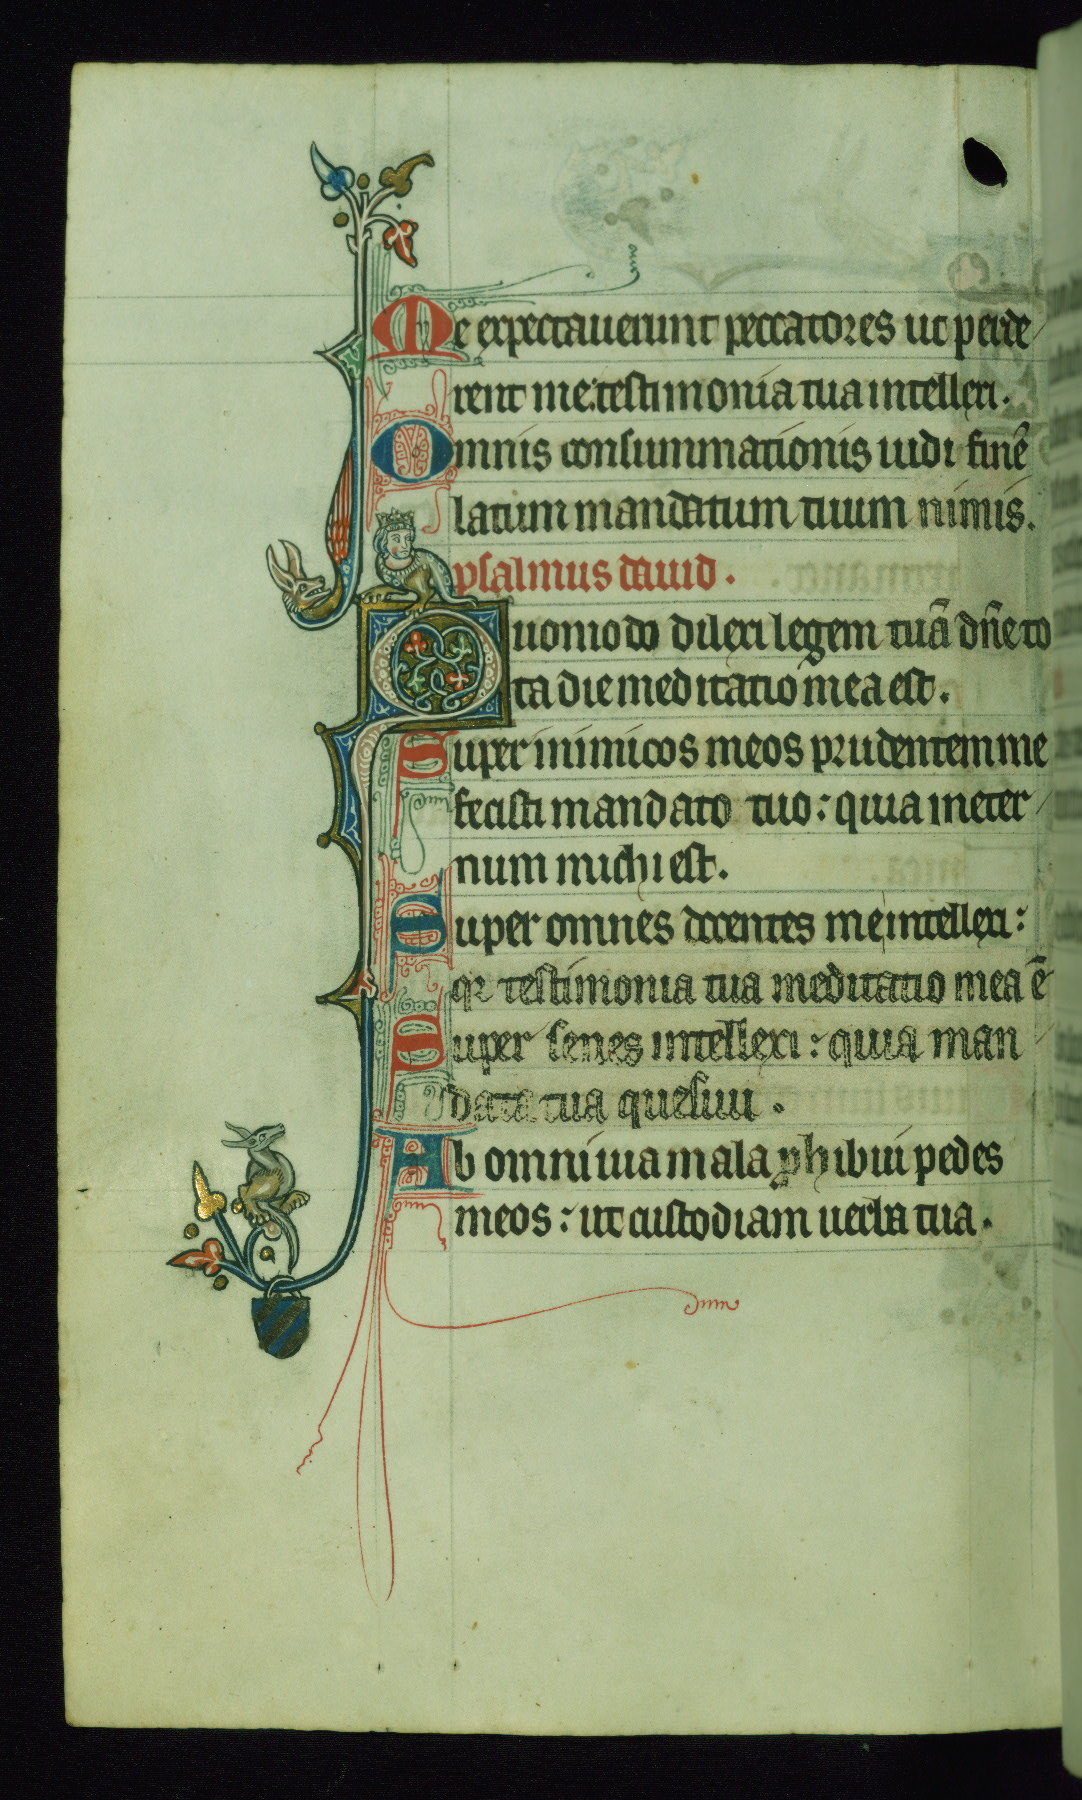 Me expectauerunt peccatores ut perde
rent me: testimonia tua intellexi.
Omnis consummationis uidi finē
latum mandatum tuum nimis.
psalmus dauid.
Quomodo dilexi legem tuā dn̄e to
ta die meditatio mea est.
Super inimicos meos prudentem me
fecisti mandato tuo: quia in eter
num michi est.
Super omnes docentes me intellexi:
qꝛ testimonia tua meditatio mea ē
Super senes intellexi: quia man
data tua quesiui.
Ab omni uia mala ꝓhibui pedes
meos: ut custodiam uerba tua.